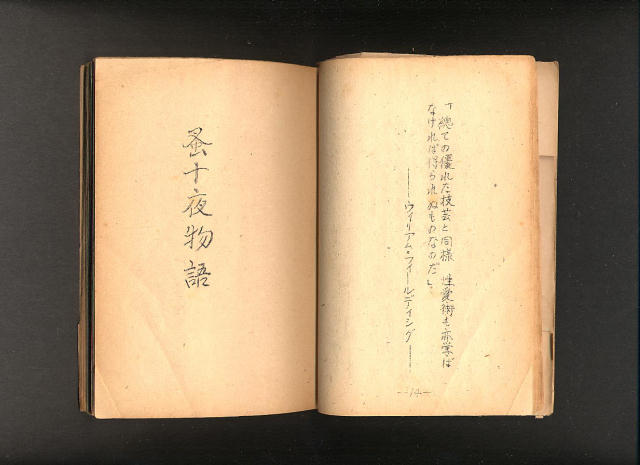 「總ての優れた技芸と同様 性愛術も亦学ば
なければ得られぬものなのだ」
――ウィリアム・フィールディング――
蚤十夜物語
—14—